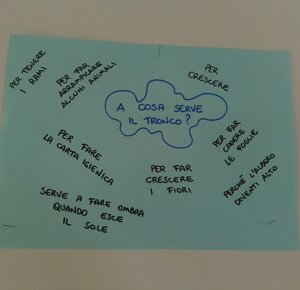 PER TENERE
I RAMI
PER FAR
ARRAMPICARE
ALCUNI ANIMALI
PER
CRESCERE
A COSA SERVE
IL TRONCO?
PER FARE
LA CARTA IGIENICA
PER FAR
CRESCERE
I FIORI
PER FAR
CADERE
LE FOGLIE
PERCHÉ L'ALBERO
DIVENTI ALTO
SERVE A FARE OMBRA
QUANDO ESCE
IL SOLE